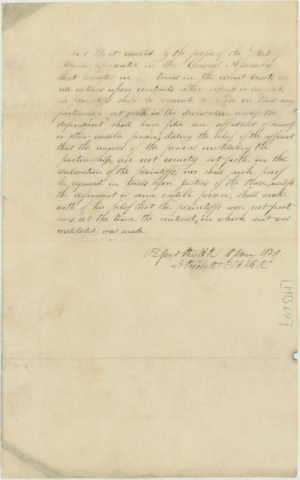 Be it enacted by the people of the State of
Illinois represented in the General Assembly
that hereafter in Suits in the circuit courts in
actions upon contracts either verbal or
no plaintiffs shall be required to on trial any
partnership set forth in the declaration unless the
defendant shall have filed an affidavit of himself
or other credible person, stating the belief of the affiant
that the names of the persons constituting the
partnership are not correctly set forth in the
declaration of the plaintiffs, nor shall such proof
be required in trials before Justices of the Peace, unless
the defendant or some credible person, shall make
oath of his belief that the plaintiffs were not part
ners at the time the contract, in which suit was
instituted was made.
H.R. 18 Jany
H.R.
[HB 69]